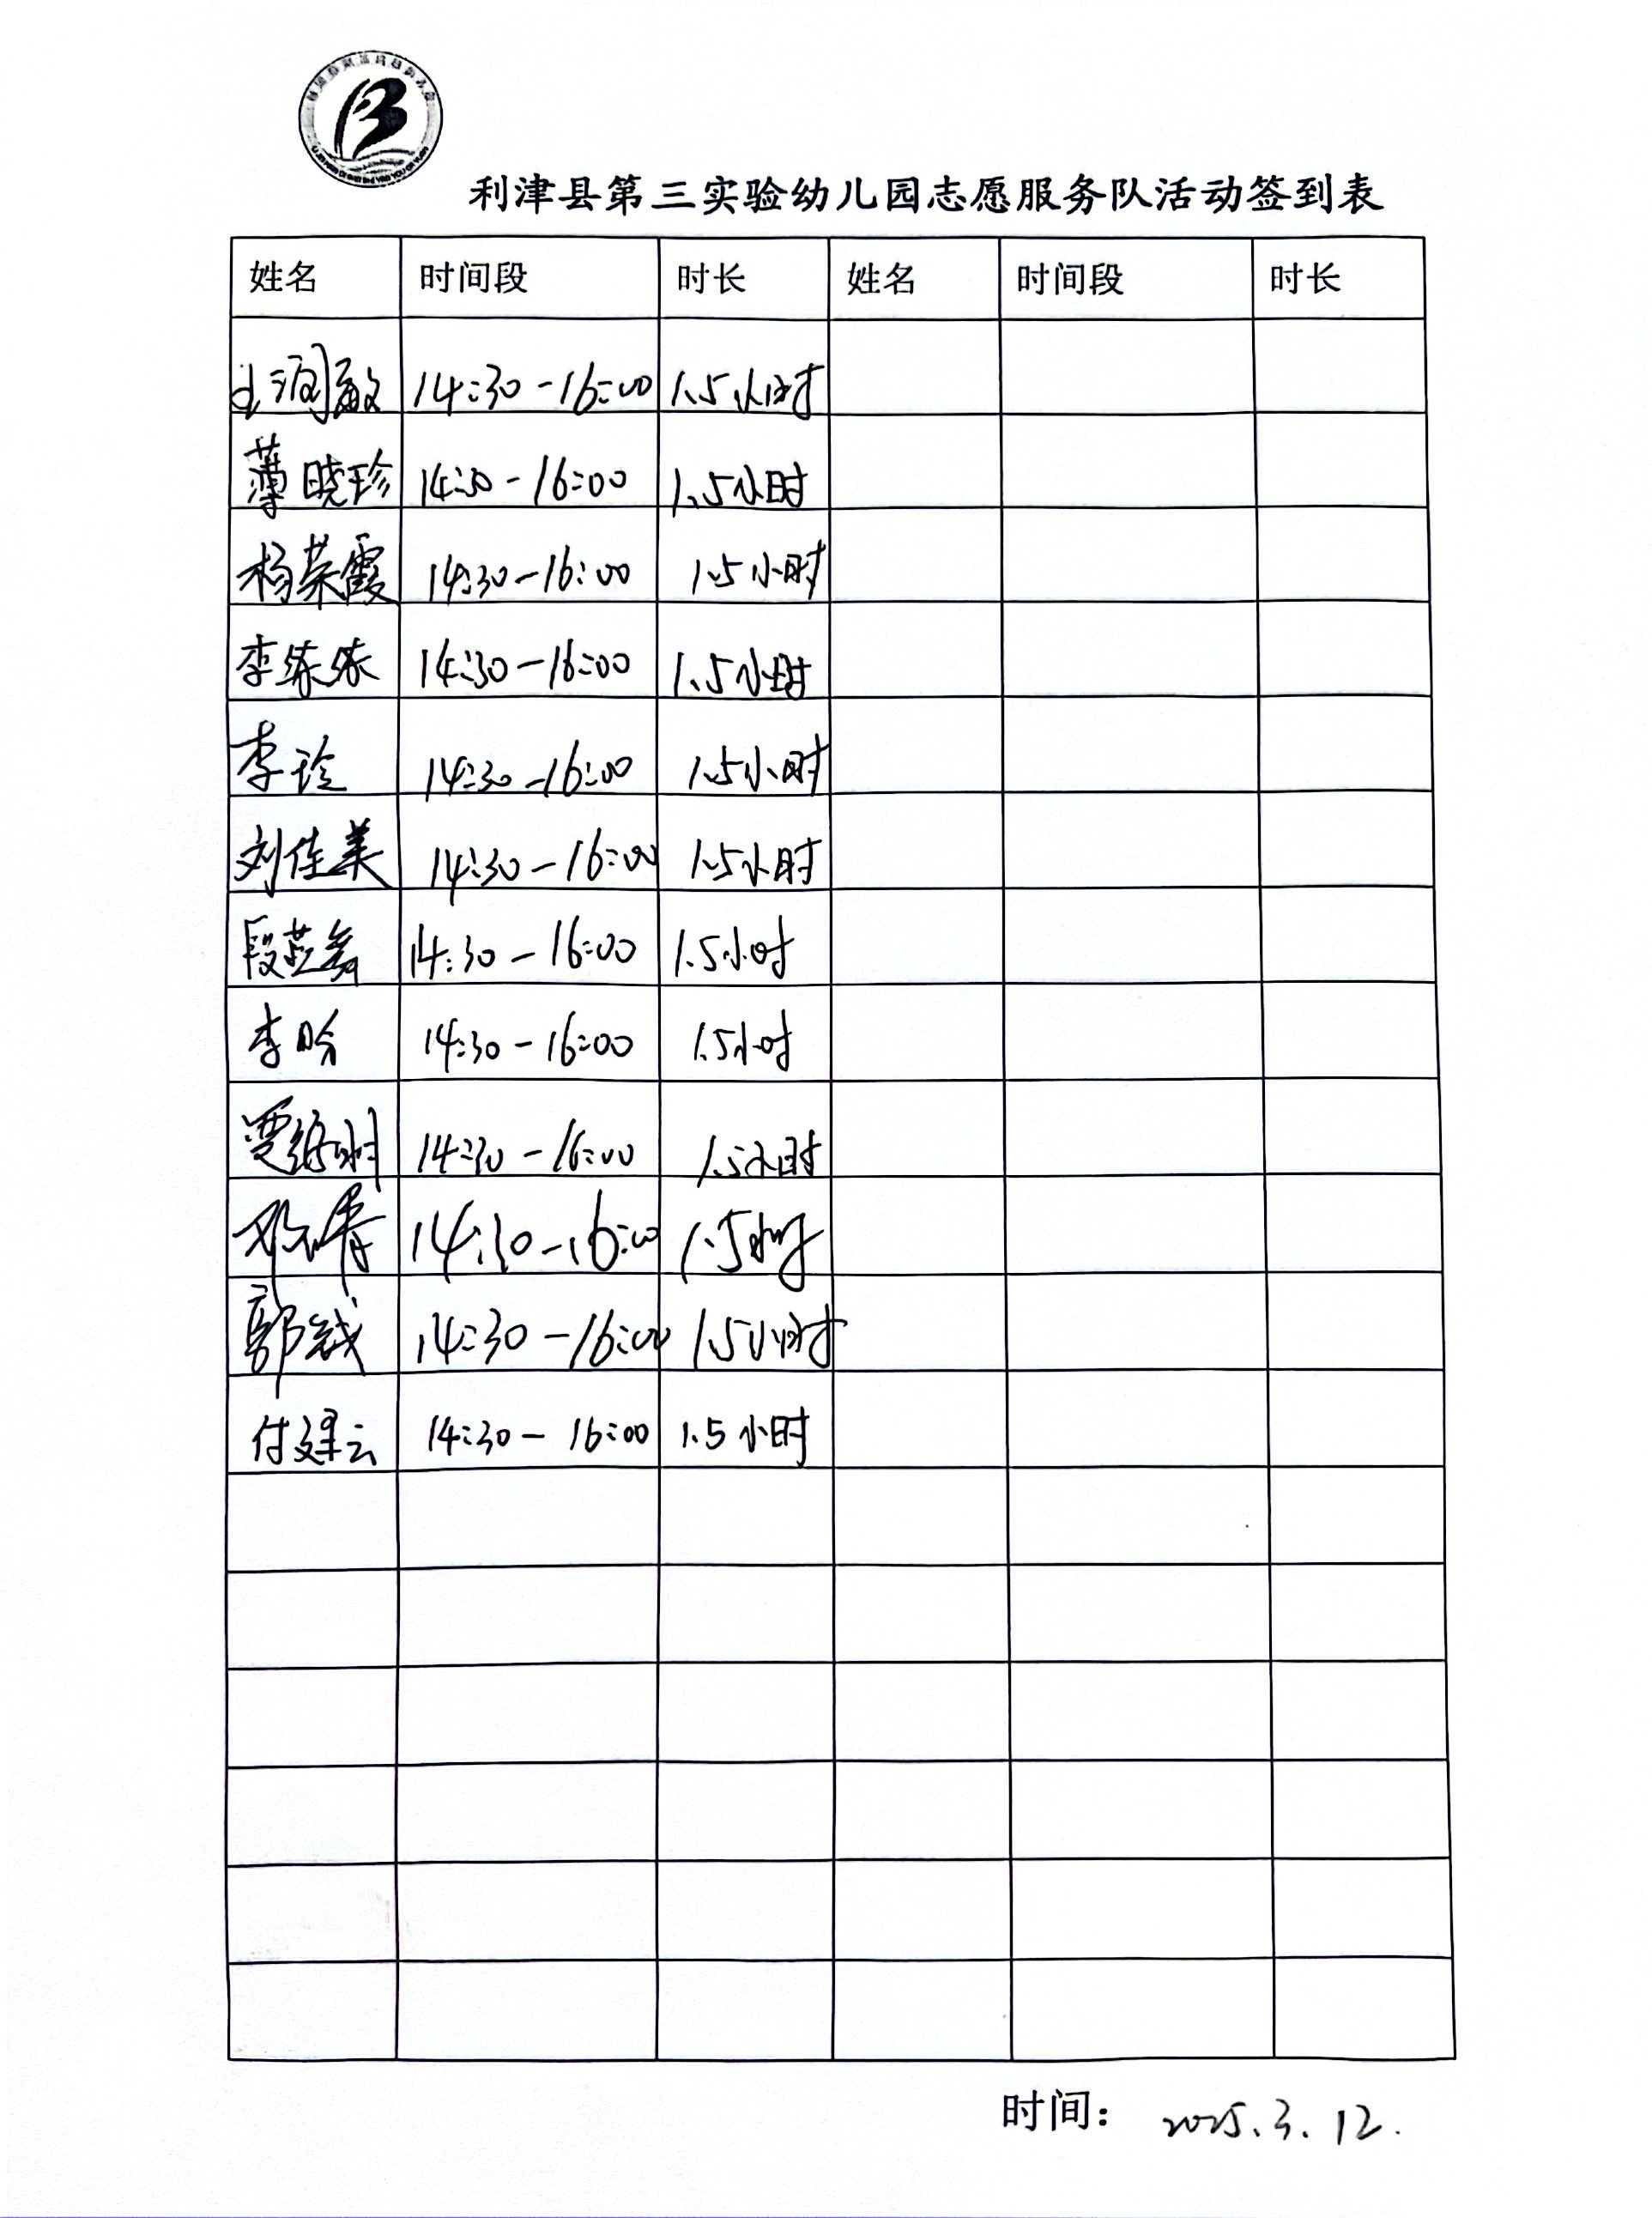 利津县第三实验幼儿园志愿服务队活动签到表
姓名 时间段 时长 姓名 时间段 时长
14:30-16:00 1.5小时
薄晓珍 14:30-16:00 1.5小时
杨荣霞 14:30-16:00 1.5小时
李 14:30-16:00 1.5小时
李玲 14:30-16:00 1.5小时
刘佳美 14:30-16:00 1.5小时
段 14:30-16:00 1.5小时
李昤 14:30-16:00 1.5小时
贾 14:30-16:00 1.5小时
邓青 14:30-16:00 1.5小时
郭 14:30-16:00 1.5小时
付建云 14:30-16:00 1.5小时
时间: 2025.3.12.